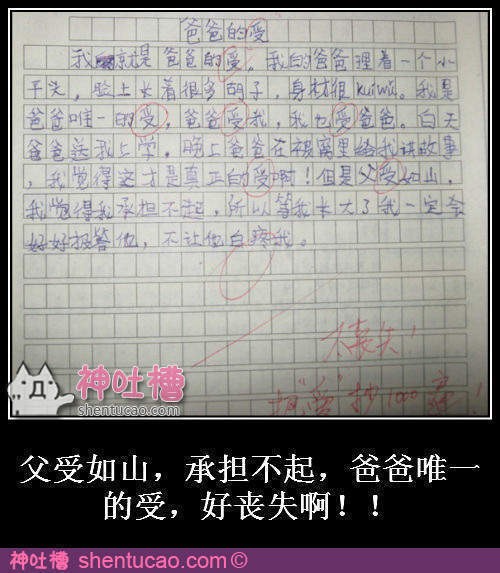 爸爸的受
我就是爸爸的受。我的爸爸理着一个小
平头，脸上长着很多胡子，身材很kuíwú。我是
爸爸唯一的受，爸爸受我，我也受爸爸。白天
爸爸送我上学。晚上爸爸在被窝里给我讲故事
，我觉得这才是真正的受啊！但是父受如山，
我觉得我承担不起，所以等我长大了我一定会
好好报答他，不让他白疼我。
太丧失！
把“爱”抄1000遍！
神吐槽
shentucao.com
父受如山，承担不起，爸爸唯一
的受，好丧失啊！！
神吐槽 shentucao.com©